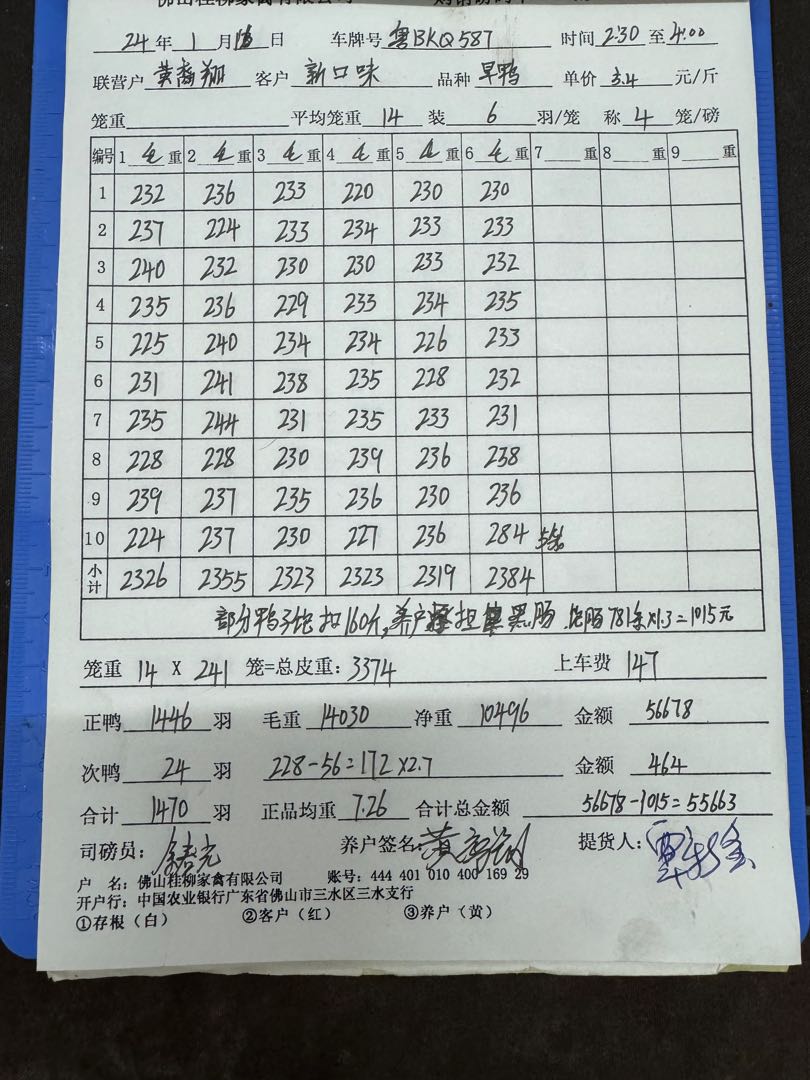 佛山桂柳家禽有限公司
24年1月 日 车牌号 粤BKQ587 时间 2:30 至 4:00
联营户 黄裔翔 客户 新口味 品种 早鸭 单价 3.4 元/斤
笼重 平均笼重 14 装 6 羽/笼 称 4 笼/磅
编号 1 毛 重 2 毛 重 3 毛 重 4 毛 重 5 毛 重 6 毛 重 7 重 8 重 9 重
1 232 236 233 220 230 230
2 237 224 233 234 233 233
3 240 232 230 230 233 232
4 235 236 229 233 234 235
5 225 240 234 234 226 233
6 231 241 238 235 228 232
7 235 244 231 235 233 231
8 228 228 230 239 236 238
9 239 237 235 236 230 236
10 224 237 230 227 236 284
小计 2326 2355 2323 2323 2319 2384
部分鸭子饱扣160斤,养户 担 黑肠 781条×1.3=1015元
笼重 14 X 241 笼=总皮重: 3374 上车费 147
正鸭 1446 羽 毛重 14030 净重 10496 金额 56678
次鸭 24 羽 228-56=172×2.7 金额 464
合计 1470 羽 正品均重 7.26 合计总金额 56678-1015=55663
司磅员: 养户签名: 提货人:
户 名: 佛山桂柳家禽有限公司 账号: 444 401 010 400 169 29
开户行: 中国农业银行广东省佛山市三水区三水支行
①存根(白) ②客户(红) ③养户(黄)